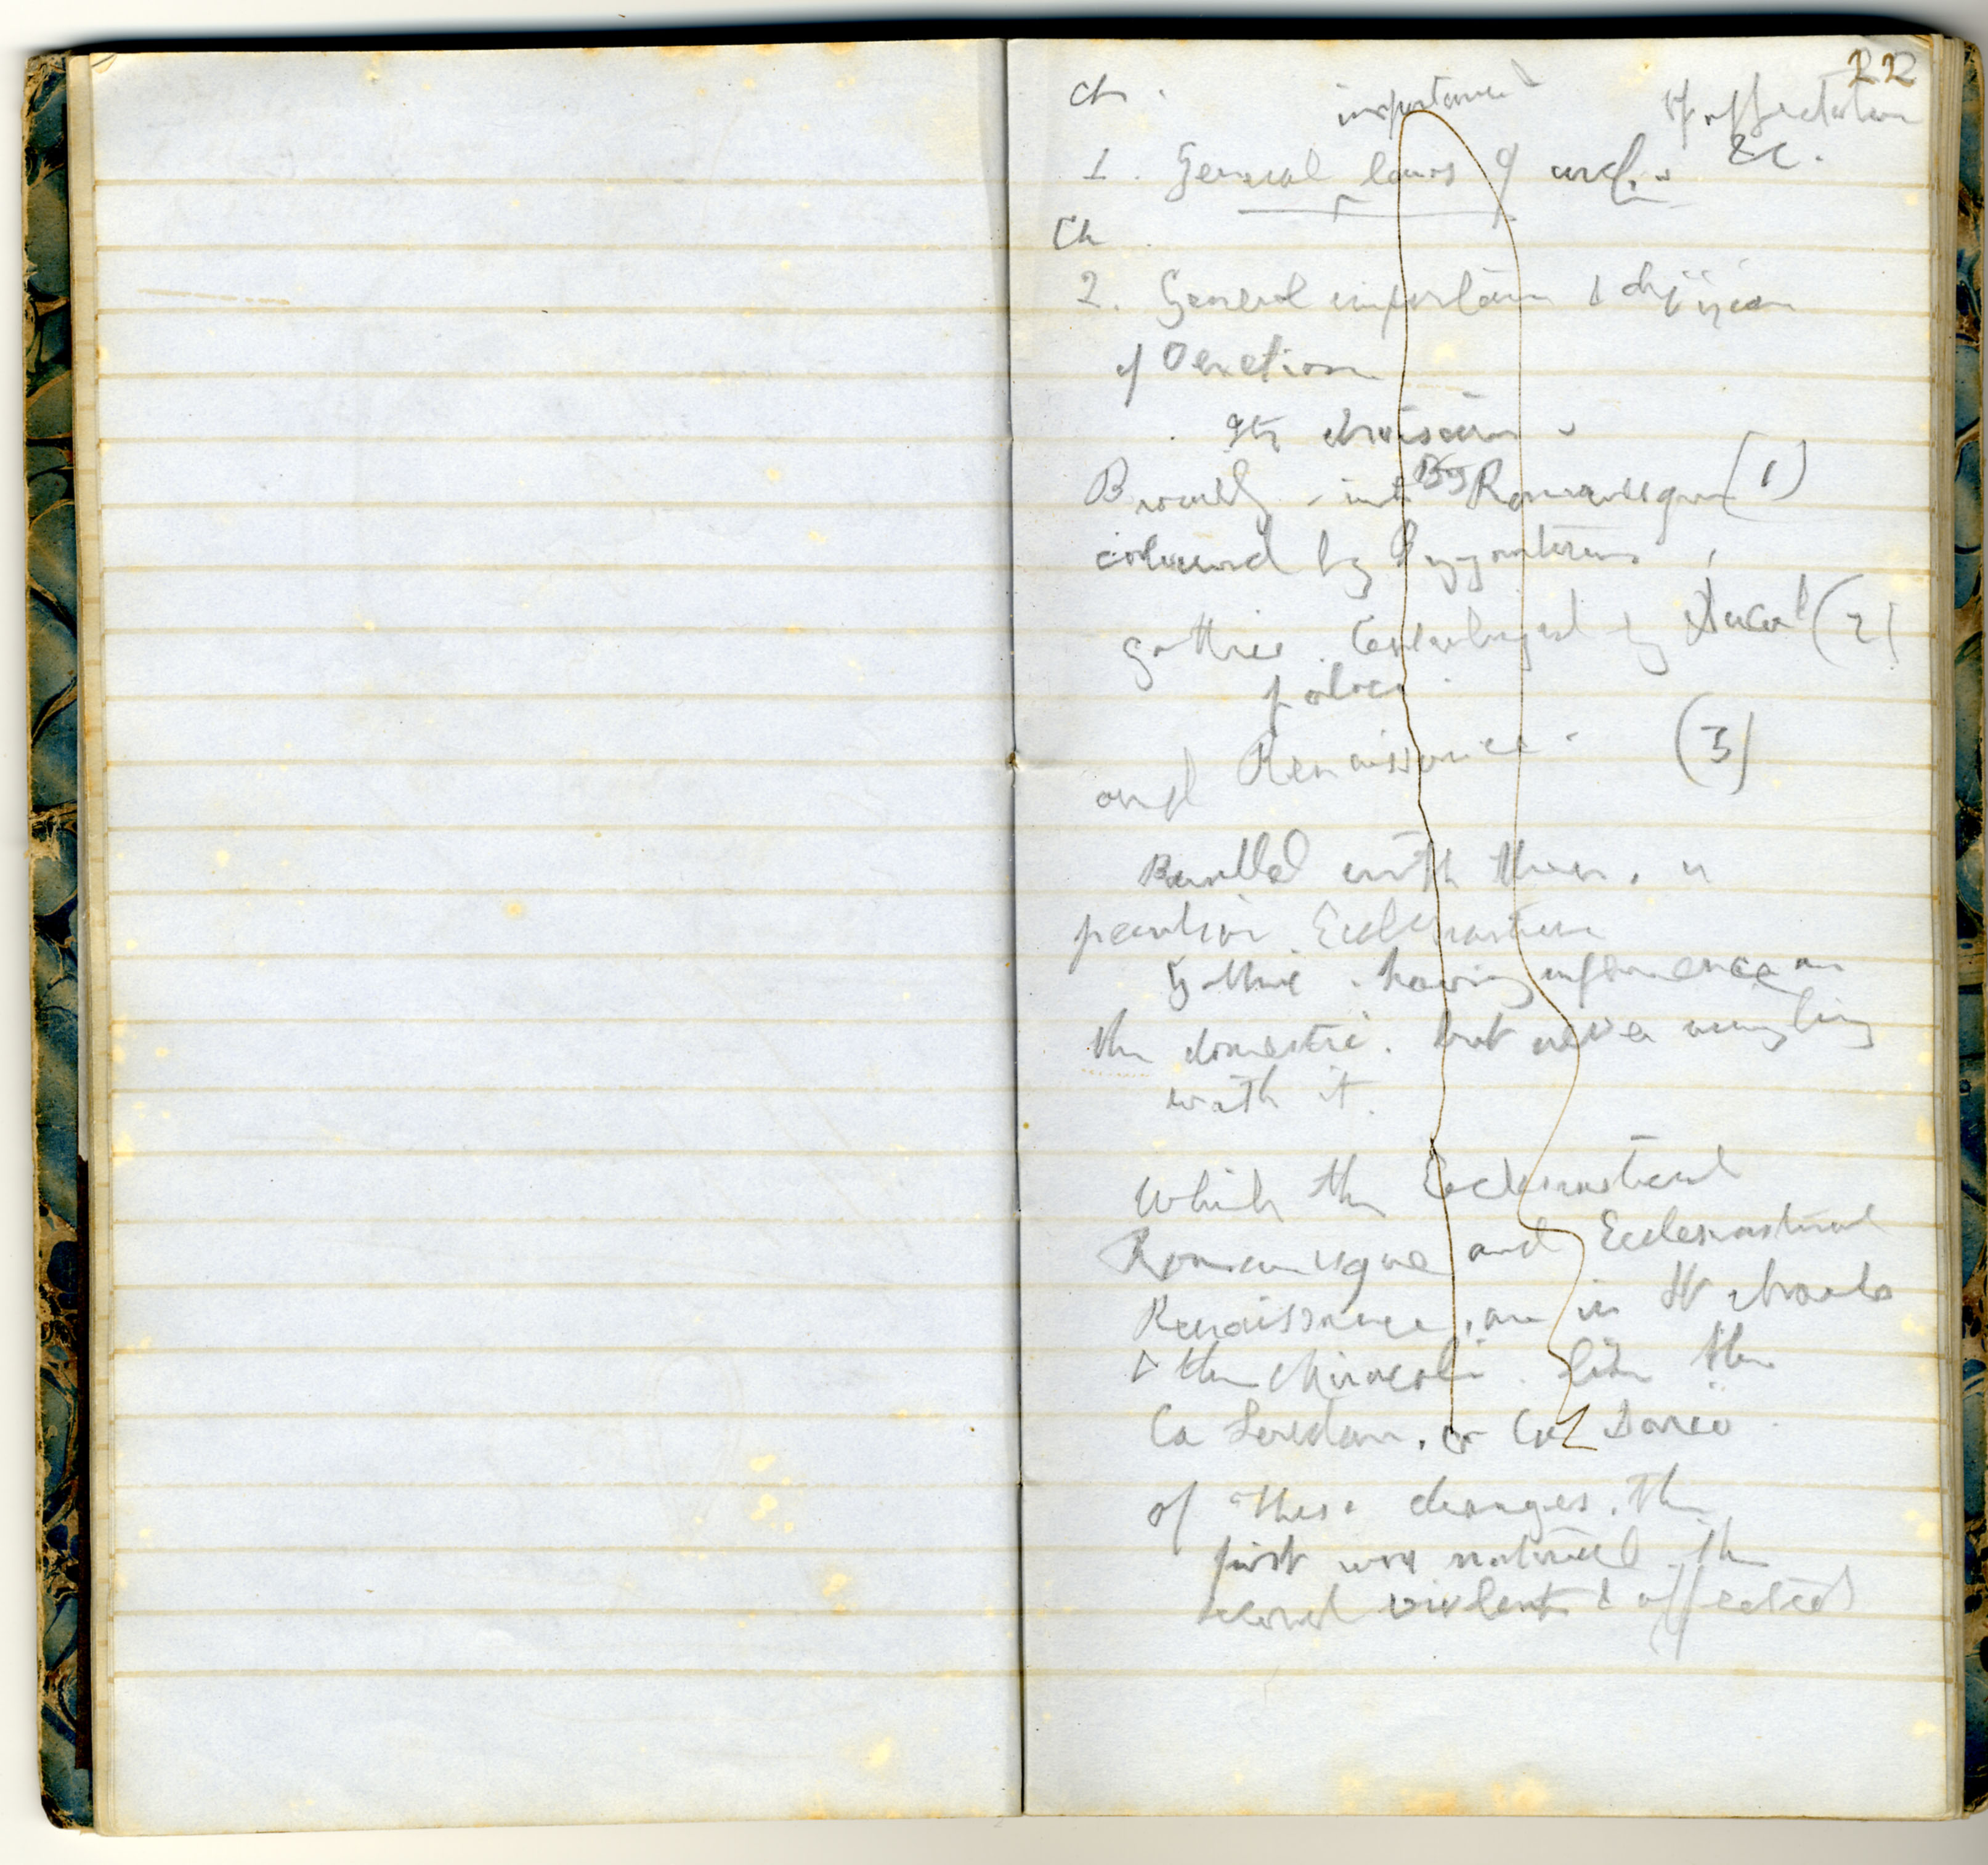 22
Ch. importance of affectation
1. General laws of arch. &c.
Ch
2. General importance & division
of Venetian
Its divisions
Broadly - into Byz Romanesque (1)
coloured by Byzantine
Gothic. by Ducal (2)
palace.
and Renaissance. (3)
Parallel with these. a
peculiar. Ecclesiastical
Gothic. having influence on
the domestic. but never mingling
with it.
While the Ecclesiastical
Romanesque and Ecclesiastical
Renaissance, are in St Marks
& the Miracoli. like the
Ca Loredan. or Ca Dario
of these changes. the
first was natural. the
second violent & affected